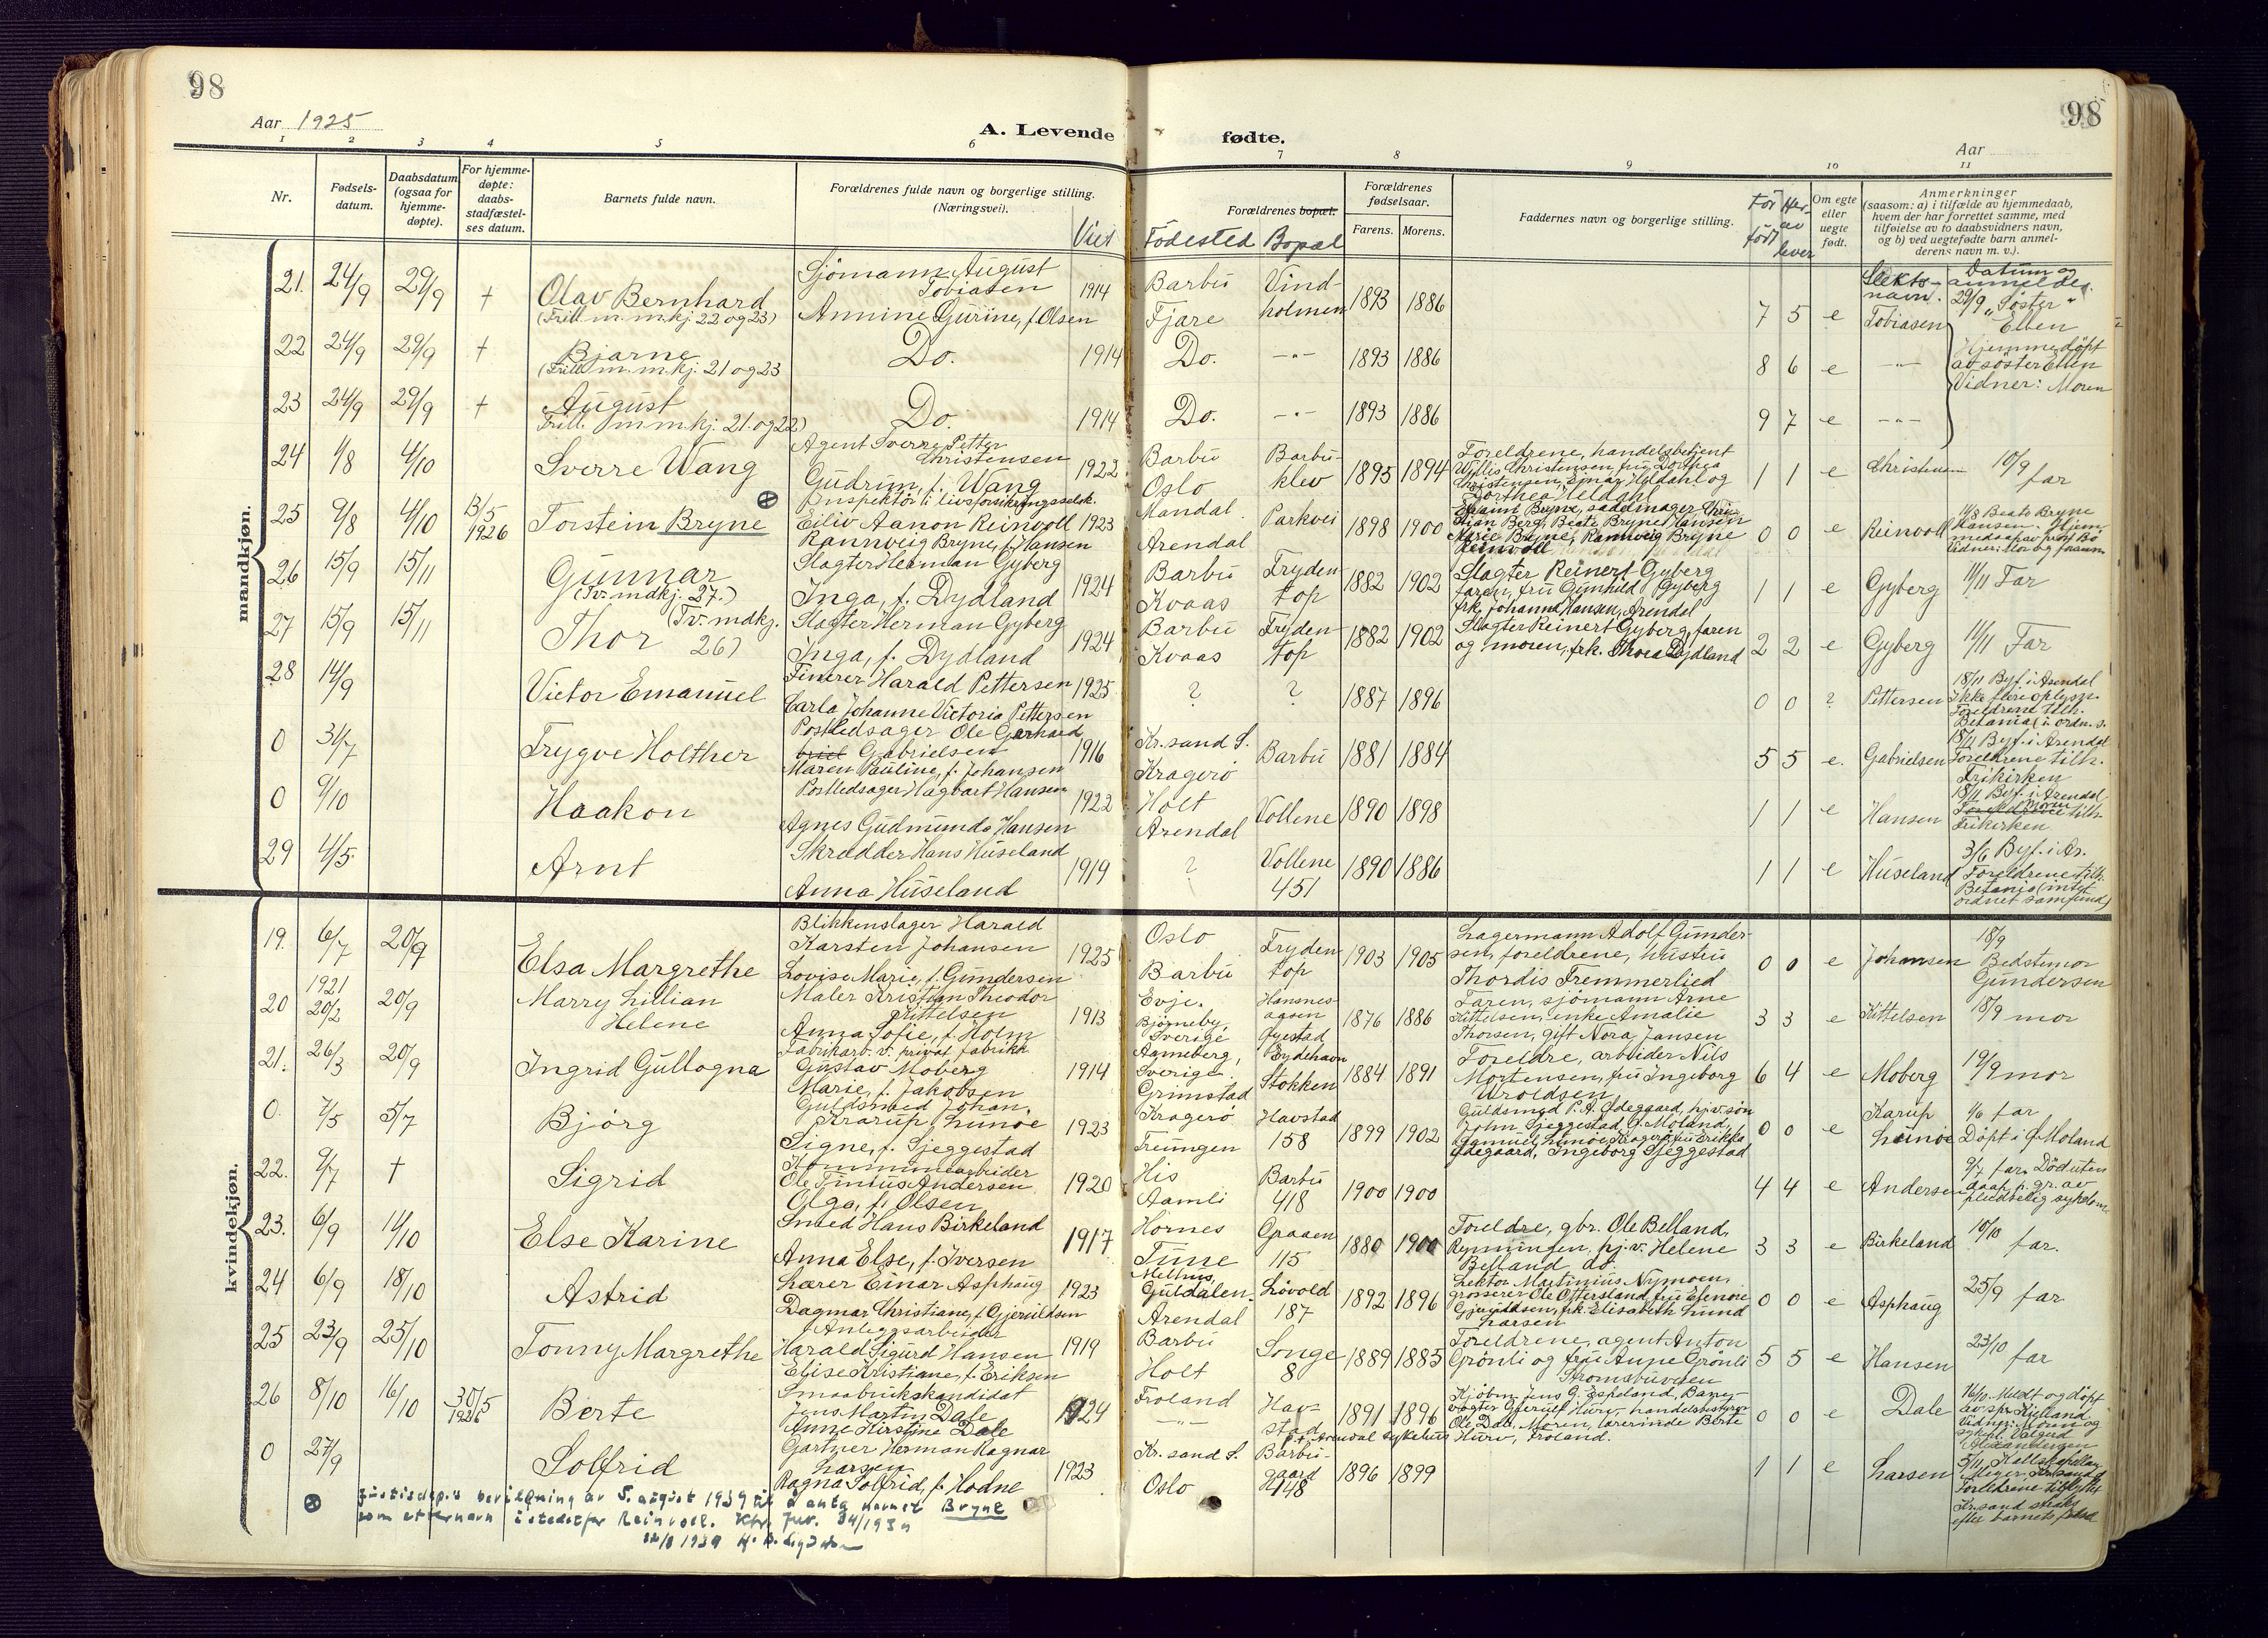 98
98
Aar 1925
A. Levende
fødte.
Aar
1 2 3 4 5 6 7 8 9 10 11
Nr.
Fødsels-
datum.
Daabsdatum
(ogsaa for
hjemme-
døpte).
For hjemme-
døpte:
daabs-
stadfæstel-
ses datum.
Barnets fulde navn.
Forældrenes fulde navn og borgerlige stilling.
(Næringsvei).
Viet
Forældrenes bopæl.
Födested Bopæl
Forældrenes
fødselsaar.
Farens. Morens.
Faddernes navn og borgerlige stilling.
För født
Her-
av
lever
Om egte
eller
uegte
født.
Anmerkninger
(saasom: a) i tilfælde av hjemmedaab,
hvem der har forrettet samme, med
tilføielse av to daabsvidners navn,
og b) ved uegtefødte barn anmel-
derens navn m. v.).
Slekts-
navn.
Datum og
anmelder.
mandkjøn.
21. 24/9 29/9 † Olav Bernhard
(Trill. m. m.kj. 22 og 23)
Sjömann August
Tobiasen
Annine Gurine, f. Olsen
1914
Barbu
Fjære
Vind-
holmen
1893 1886
7 5 e Tobiasen
29/9 Søster
Ellen
22 24/9 29/9 † Bjarne
(Trill. m. m.kj. 21 og 23
Do. 1914 Do. -"- 1893 1886
8 6 e -"-
Hjemmedöpt
av söster Ellen
Vidner: Moren
23 24/9 29/9 † August
Trill. m m kj. 21. og 22)
Do. 1914 Do. -"- 1893 1886
9 7 e -"-
24 1/8 4/10 Sverre Wang
Agent Sverre Petter
Christensen
Gudrun, f. Wang
1922
Barbu
Oslo
Barbu-
klev
1895 1894
Foreldrene, handelsbetjent
Willis Christensen, fru Dorthea
Christensen, Einar Heldahl og
Dorthea Heldahl
1 1 e Christensen
10/9
far
25 9/8 4/10 13/5
1926
Torstein Bryne
Inspektör i livsforsikringsselsk.
Eiliv Aanon Reinvoll
Rannveig Bryne, f. Hansen
1923
Mandal.
Arendal
Parkvei
1898 1900
Bryne, sadelmager
Berg, Beate Bryne Hansen
Marie Bryne, Rannveig Bryne
Reinvoll
0 0 e Reinvoll
11/8 Beate Bryne
Hansen. Hjem-
medaab av
Vidner: Mor og
26 15/9 15/11 Gunnar
(Tv. mdkj. 27.)
Slagter Herman Gyberg
Inga, f. Dydland
1924
Barbu
Kvaas
Fryden-
top
1882 1902
Slagter Reinert Gyberg
faren, fru Gunhild Gyberg
frk. Johanna Hansen, Arendal
1 1 e Gyberg
11/11 Far
27 15/9 15/11 Thor
(Tv. mdkj.
26)
Slagter Herman Gyberg
Inga, f. Dydland
1924
Barbu
Kvaas
Fryden-
top
1882 1902
Slagter Reinert Gyberg, faren
og moren, frk. Thora Dydland
2 2 e Gyberg
11/11 Far
28 14/9 Victor Emanuel
Finerer Harald Pettersen
Carla Johanne Victoria Pettersen
1925
? ? 1887 1896
0 0 ? Pettersen
18/11 Byf. i Arendal
Ikke flere oplysn.
Foreldrene tilh.
Betania (i ordn. s.
0 31/7 Trygve Holther
Postledsager Ole Gerhard
Gabrielsen
Maren Pauline, f. Johansen
1916
Kr.sand S.
Kragerö
Barbu
1881 1884
5 5 e. Gabrielsen
18/11 Byf. i Arendal
Foreldrene tilh.
Frikirken
0 9/10 Haakon
Postledsager Hagbart Hansen
Agnes Gudmunda Hansen
1922
Holt
Arendal
Vollene
1890 1898
1 1 e Hansen
18/11 Byf. i Arendal
Moren tilh.
Frikirken
29 4/5. Arnt
Skrædder Hans Huseland
Anna Huseland
1919
?
Vollene
451
1890 1886
1 1 e Huseland
3/6 Byf. i Ar.
Foreldrene tilh.
Betania (intet
ordnet samfund)
kvindekjøn.
19. 6/7 20/9 Elsa Margrethe
Blikkenslager Harald
Karsten Johansen
Lovise Marie, f. Gundersen
1925
Oslo
Barbu
Fryden-
top
1903 1905
Lagermann Adolf Gunder-
sen, foreldrene, hustru
Thordis Tremmerlied
0 0 e Johansen
18/9
Bedstemor
Gundersen
20 1921
20/2 20/9
Marry Lillian
Helene
Maler Kristian Theodor
Kittelsen
Anna Sofie, f. Holm
1913
Evje.
Björneby,
Sverige
Øyestad
1876 1886
Faren, sjömann Arne
Kittelsen, enke Amalie
Thorsen, gift Nora Jansen
3 3 e Kittelsen
18/9 mor
21. 26/3 20/9 Ingrid Gullogna
Fabrikarb. v. privat fabrikk
Gustav Moberg
Marie, f. Jakobsen
1914
Sverige.
Grimstad
Eydehavn
Stokken
1884 1891
Foreldre, arbeider Nils
Mortensen, fru Ingeborg
Uroldsen
6 4 e Moberg
19/9 mor
0. 7/5 5/7 Bjørg
Guldsmed Johan.
Krarup Lunöe
Signe, f. Sjeggestad
1923
Kragerö
Treungen
Havstad
158
1899 1902
Guldsmed P. A. Ødegaard, hj.v. søn
John Sjeggestad, Ø. Moland,
Samuel Lunöe, Kragerö, fru Erikka
Ødegaard, Ingeborg Sjeggestad
0 0 e
Karup
Lunöe
4/6 far
Döpt i Ø. Moland
22. 9/7 † Sigrid
Kommunearbeider
Ole Tinius Andersen
Olga, f. Olsen
1920
His
Aamli
Barbu
418
1900 1900
4 4 e Andersen
9/7 far. Död uten
daap p. gr. av
pludselig sykdom
23. 6/9 11/10 Else Karine
Smed Hans Birkeland
Anna Else, f. Iversen
1917
Hornes
Time
Graaen
115
1880 1900
Foreldre, gbr. Ole Belland,
Rynningen, hj.v. Helene
Belland do.
3 3 e Birkeland
10/10
far.
24 6/9 18/10 Astrid
Lærer Einar Asphaug
Dagmar Christiane, f. Gjeruldsen
1923
Melhus,
Guldalen.
Arendal
Lövold
187
1892 1896
Lektor Martinius Nymoen,
grosserer Ole Ottersland, fru Elenore
Gjeruldsen, frk. Elisabeth Lund
Larsen
0 0 e Asphaug
25/9 far
25 23/9 25/10 Tonny Margrethe
Anleggsarbeider
Harald Sigurd Hansen
Elise Kristiane, f. Eriksen
1919
Barbu
Holt
Songe
8
1889 1885
Foreldrene, agent Anton
Grönli og fru Anne Grönli
Strømsbuveien
5 5 e Hansen
23/10
far
26 8/10 16/10 30/5
1926
Berte
Smaabrukskandidat
Jens Martin Dale
Anne Kirstine Dale
1924
Froland
-"-
Hav-
stad
p.t. Arendal sykehus
1891 1896
Kjöbm. Jens G. Espeland,
Hurv, handelsbestyrer
Ole Dale. Moren, lærerinde Berte
Hurv, Froland.
0 0 e Dale
16/10. Meldt og döpt
av spr. Kielland
Vidner: Moren og
sykepl. Valgerd
Alexandersen
0 27/9 Solfrid
Gartner Herman Ragnar
Larsen
Ragna Solfrid, f. Hodne
1923
Kr. sand S.
Oslo
Barbu-
gaard
148
1896 1899
1 1 e Larsen
5/11. Kallskapellan
Meyer, Kr.sand S
Foreldrene tilflyttet
Kr.sand straks
efter barnets födsel
⊗ Justisdep.s bevillning av 5. august 1939 til å anta navnet Bryne
som etternavn istedetfor Reinvoll. Kfr. Jnr. 34/1939